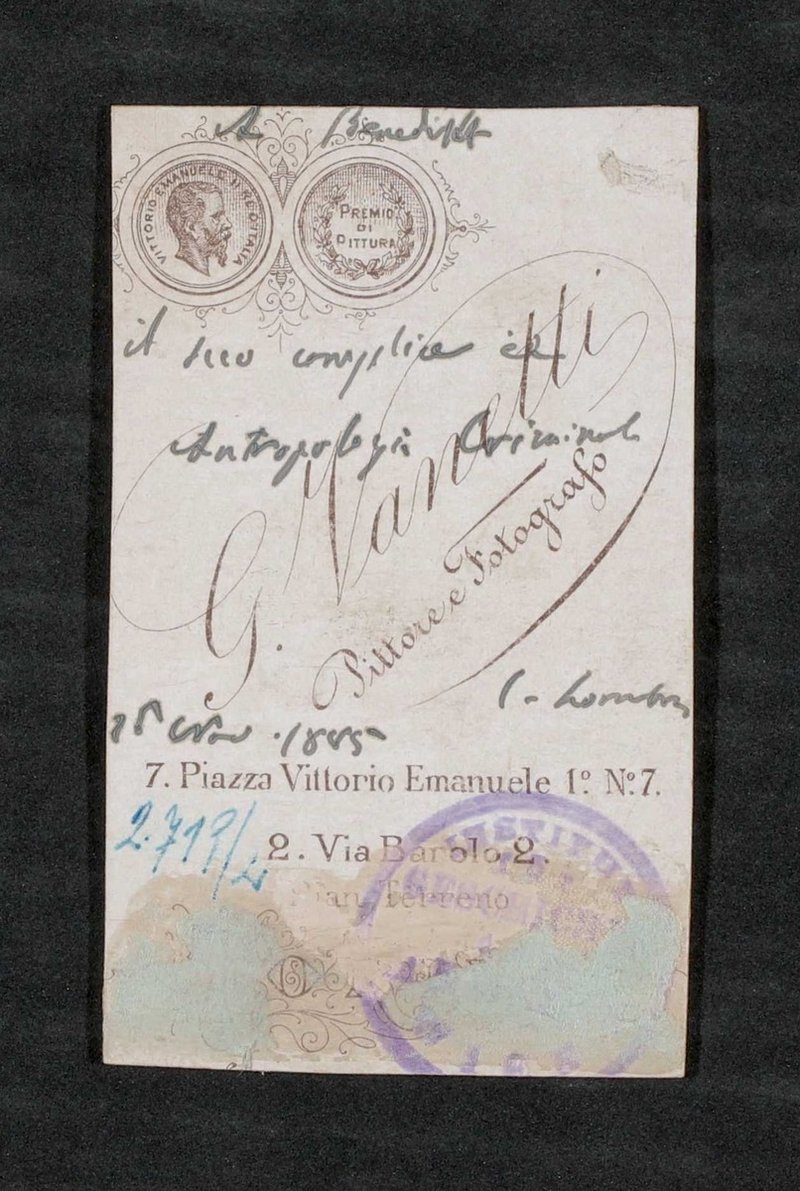 A Benedikt
VITTORIO EMANUELE II RE D'ITALIA
PREMIO
DI
PITTURA
il suo complice in
Antropologia Criminale
G. Vanetti
Pittore e Fotografo
C. Lombro
1885
7. Piazza Vittorio Emanuele 1º Nº 7.
2.719/4
2. Via Barolo 2.
Pian Terreno